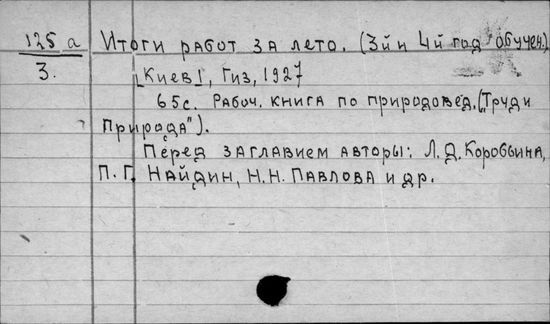 125 а
3.
Итоги работ за лето. (3й и 4й год обучен.)
[Киев], Гиз, 1927
65с. Рабоч. книга по природовед. ("Труд и
Природа").
Перед заглавием авторы: Л.Д. Коровьина,
П.Г. Найдин, Н.Н. Павлова и др.